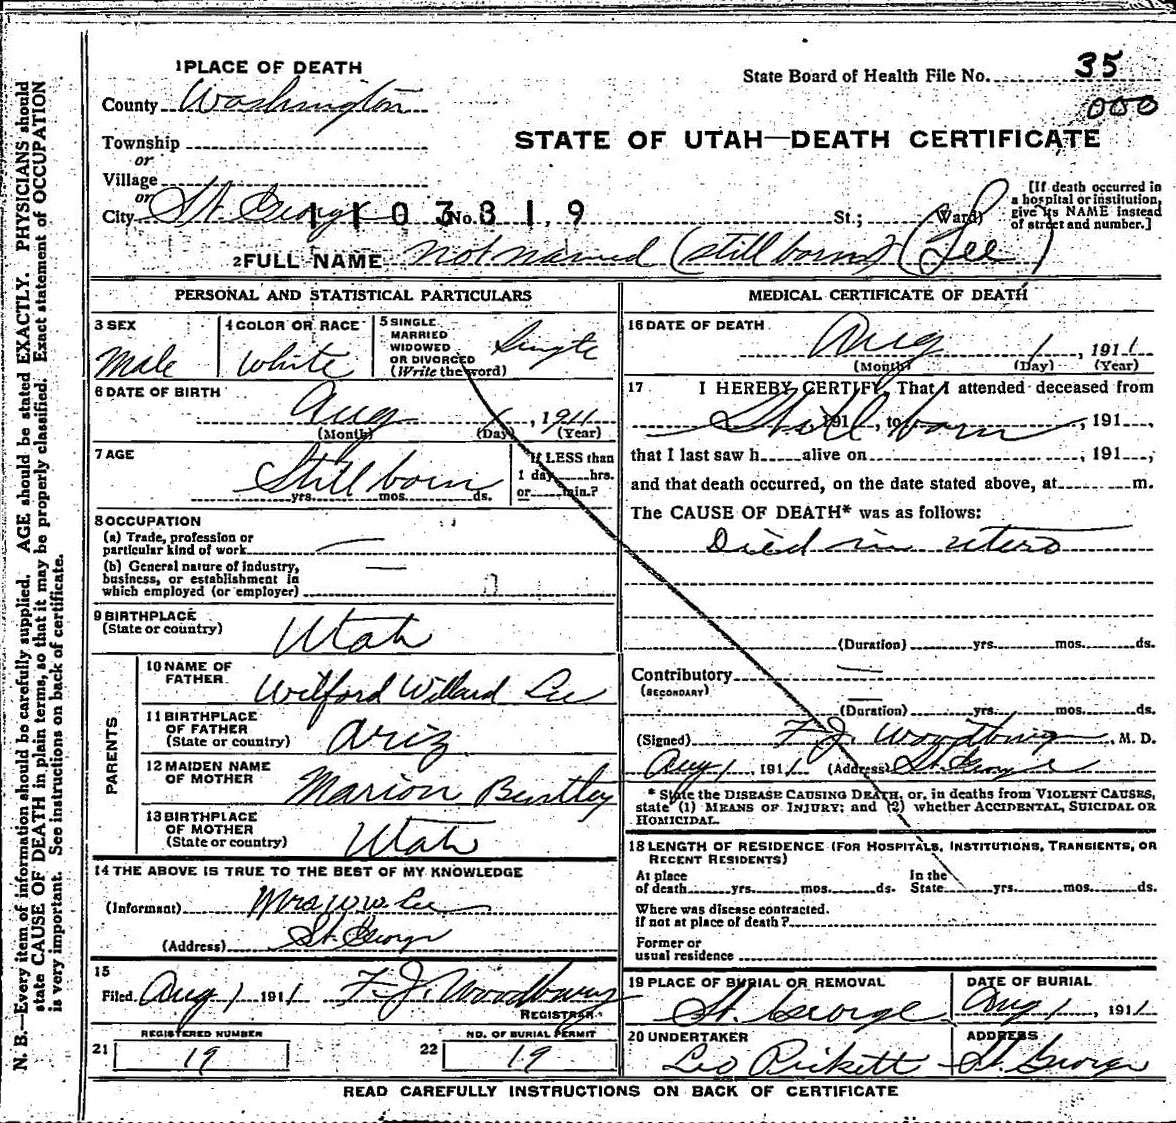 1 PLACE OF DEATH
State Board of Health File No. 35
000
County Washington
STATE OF UTAH—DEATH CERTIFICATE
Township
or
Village
or
City St. George No. St.; Ward)
1 1 0 3 8 1 9
[If death occurred in
a hospital or institution,
give its NAME instead
of street and number.]
2 FULL NAME Not named (still born) (Lee)
PERSONAL AND STATISTICAL PARTICULARS
3 SEX
Male
4 COLOR OR RACE
White
5 SINGLE
MARRIED
WIDOWED
OR DIVORCED
(Write the word)
Single
6 DATE OF BIRTH
Aug 1, 1911
(Month) (Day) (Year)
7 AGE
Still born
yrs. mos. ds.
If LESS than
1 day hrs.
or min.?
8 OCCUPATION
(a) Trade, profession or
particular kind of work
(b) General nature of industry,
business, or establishment in
which employed (or employer)
9 BIRTHPLACE
(State or country)
Utah
PARENTS
10 NAME OF
FATHER
Wilford Willard Lee
11 BIRTHPLACE
OF FATHER
(State or country)
Ariz
12 MAIDEN NAME
OF MOTHER
Marion
13 BIRTHPLACE
OF MOTHER
(State or country)
Utah
14 THE ABOVE IS TRUE TO THE BEST OF MY KNOWLEDGE
(Informant) Mrs W W Lee
(Address) St. George
15
Filed Aug 1 1911 F. J. Woodbury
REGISTRAR.
REGISTERED NUMBER
21 19
NO. OF BURIAL PERMIT
22 19
MEDICAL CERTIFICATE OF DEATH
16 DATE OF DEATH
Aug 1, 1911
(Month) (Day) (Year)
17 I HEREBY CERTIFY, That I attended deceased from
191 , to , 191 ,
Still born
that I last saw h alive on , 191 ,
and that death occurred, on the date stated above, at m.
The CAUSE OF DEATH* was as follows:
Died in utero
(Duration) yrs. mos. ds.
Contributory
(SECONDARY)
(Duration) yrs. mos. ds.
(Signed) F. J. Woodbury, M. D.
Aug 1, 1911 (Address) St. George
* State the DISEASE CAUSING DEATH, or, in deaths from VIOLENT CAUSES,
state (1) MEANS OF INJURY; and (2) whether ACCIDENTAL, SUICIDAL OR
HOMICIDAL.
18 LENGTH OF RESIDENCE (FOR HOSPITALS, INSTITUTIONS, TRANSIENTS, OR
RECENT RESIDENTS)
At place
of death yrs. mos. ds.
In the
State yrs. mos. ds.
Where was disease contracted.
if not at place of death?
Former or
usual residence
19 PLACE OF BURIAL OR REMOVAL
St. George
DATE OF BURIAL
Aug 1, 1911
20 UNDERTAKER
Leo
ADDRESS
St. George
READ CAREFULLY INSTRUCTIONS ON BACK OF CERTIFICATE
N. B.—Every item of information should be carefully supplied. AGE should be stated EXACTLY. PHYSICIANS should
state CAUSE OF DEATH in plain terms, so that it may be properly classified. Exact statement of OCCUPATION
is very important. See instructions on back of certificate.